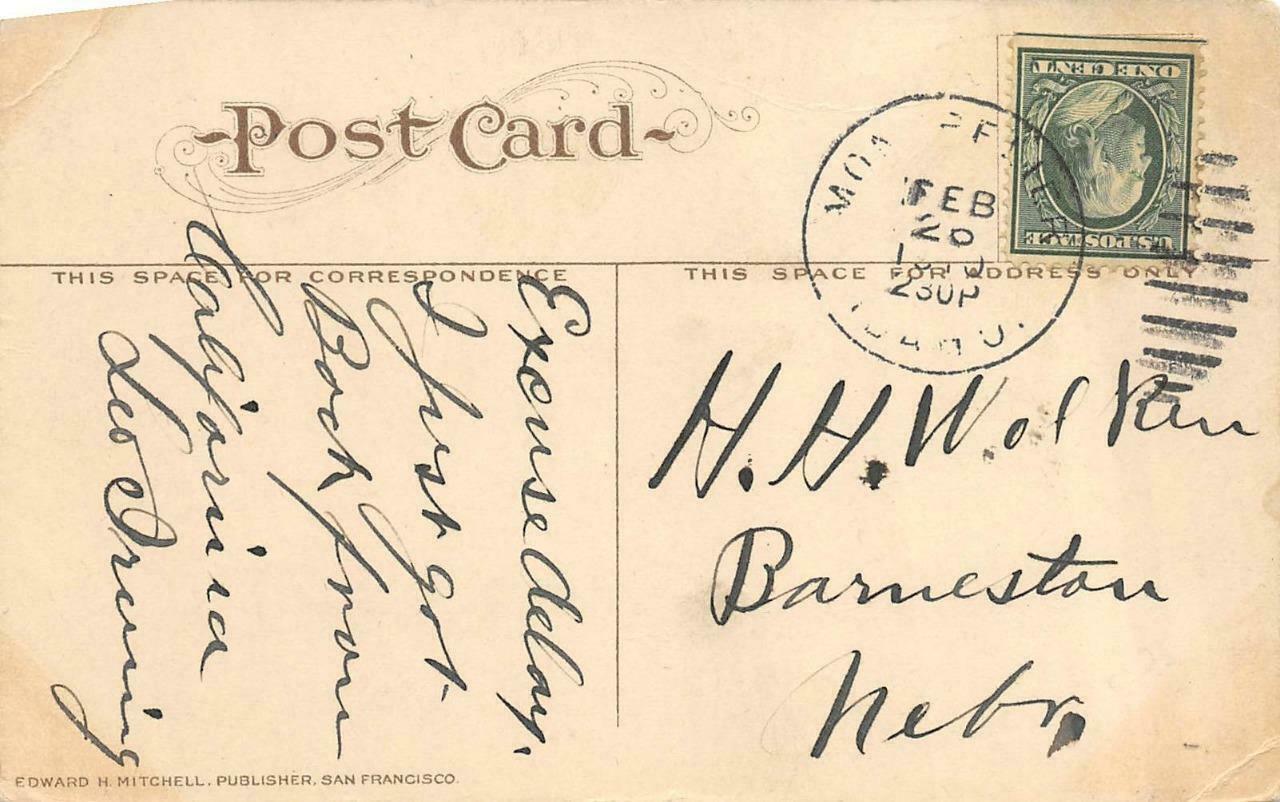 Post Card
ONE CENT
U.S. POSTAGE
FEB
20
230P
IDAHO.
THIS SPACE FOR CORRESPONDENCE
THIS SPACE FOR ADDRESS ONLY
Excuse delay.
I just got
Back from
California
Leo
H. H. Wolken
Barneston
Nebr.
EDWARD H. MITCHELL, PUBLISHER, SAN FRANCISCO.